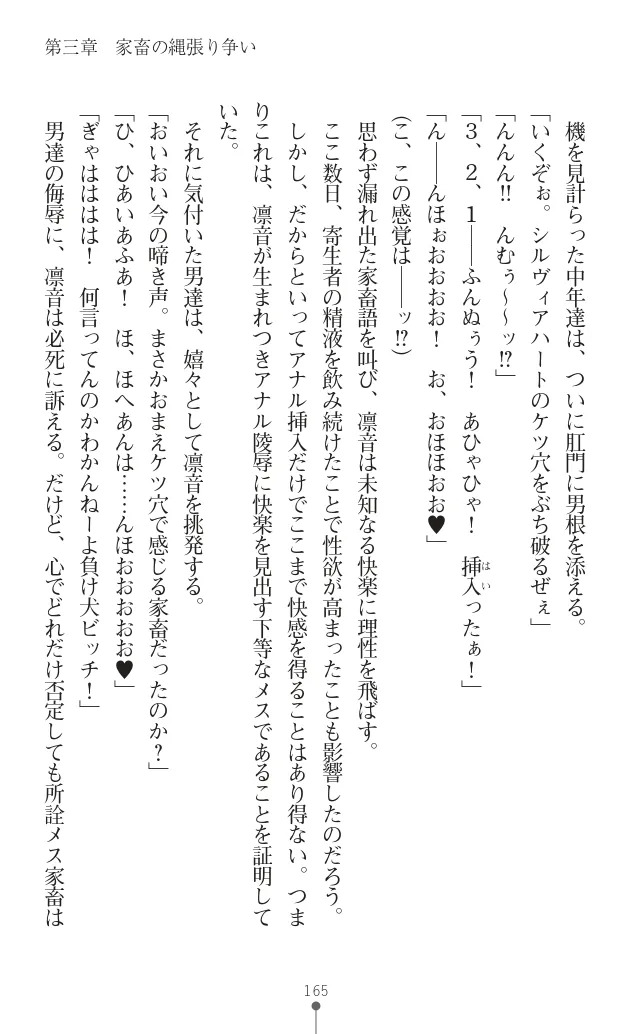 第三章　家畜の縄張り争い
機を見計らった中年達は、ついに肛門に男根を添える。
「いくぞぉ。シルヴィアハートのケツ穴をぶち破るぜぇ」
「んんん!!　んむぅ～～ッ!?」
「３、２、１――ふんぬぅう！　あひゃひゃ！　挿入ったぁ！」
はい
「ん――んほぉおおおお！　お、おほほおお♥」
(こ、この感覚は――ッ!?)
思わず漏れ出た家畜語を叫び、凛音は未知なる快楽に理性を飛ばす。
ここ数日、寄生者の精液を飲み続けたことで性欲が高まったことも影響したのだろう。
しかし、だからといってアナル挿入だけでここまで快感を得ることはあり得ない。つま
りこれは、凛音が生まれつきアナル陵辱に快楽を見出す下等なメスであることを証明して
いた。
それに気付いた男達は、嬉々として凛音を挑発する。
「おいおい今の啼き声。まさかおまえケツ穴で感じる家畜だったのか？」
「ひ、ひあいあふあ！　ほ、ほへあんは……んほおおおお♥」
「ぎゃはははは！　何言ってんのかわかんねーよ負け犬ビッチ！」
男達の侮辱に、凛音は必死に訴える。だけど、心でどれだけ否定しても所詮メス家畜は
165